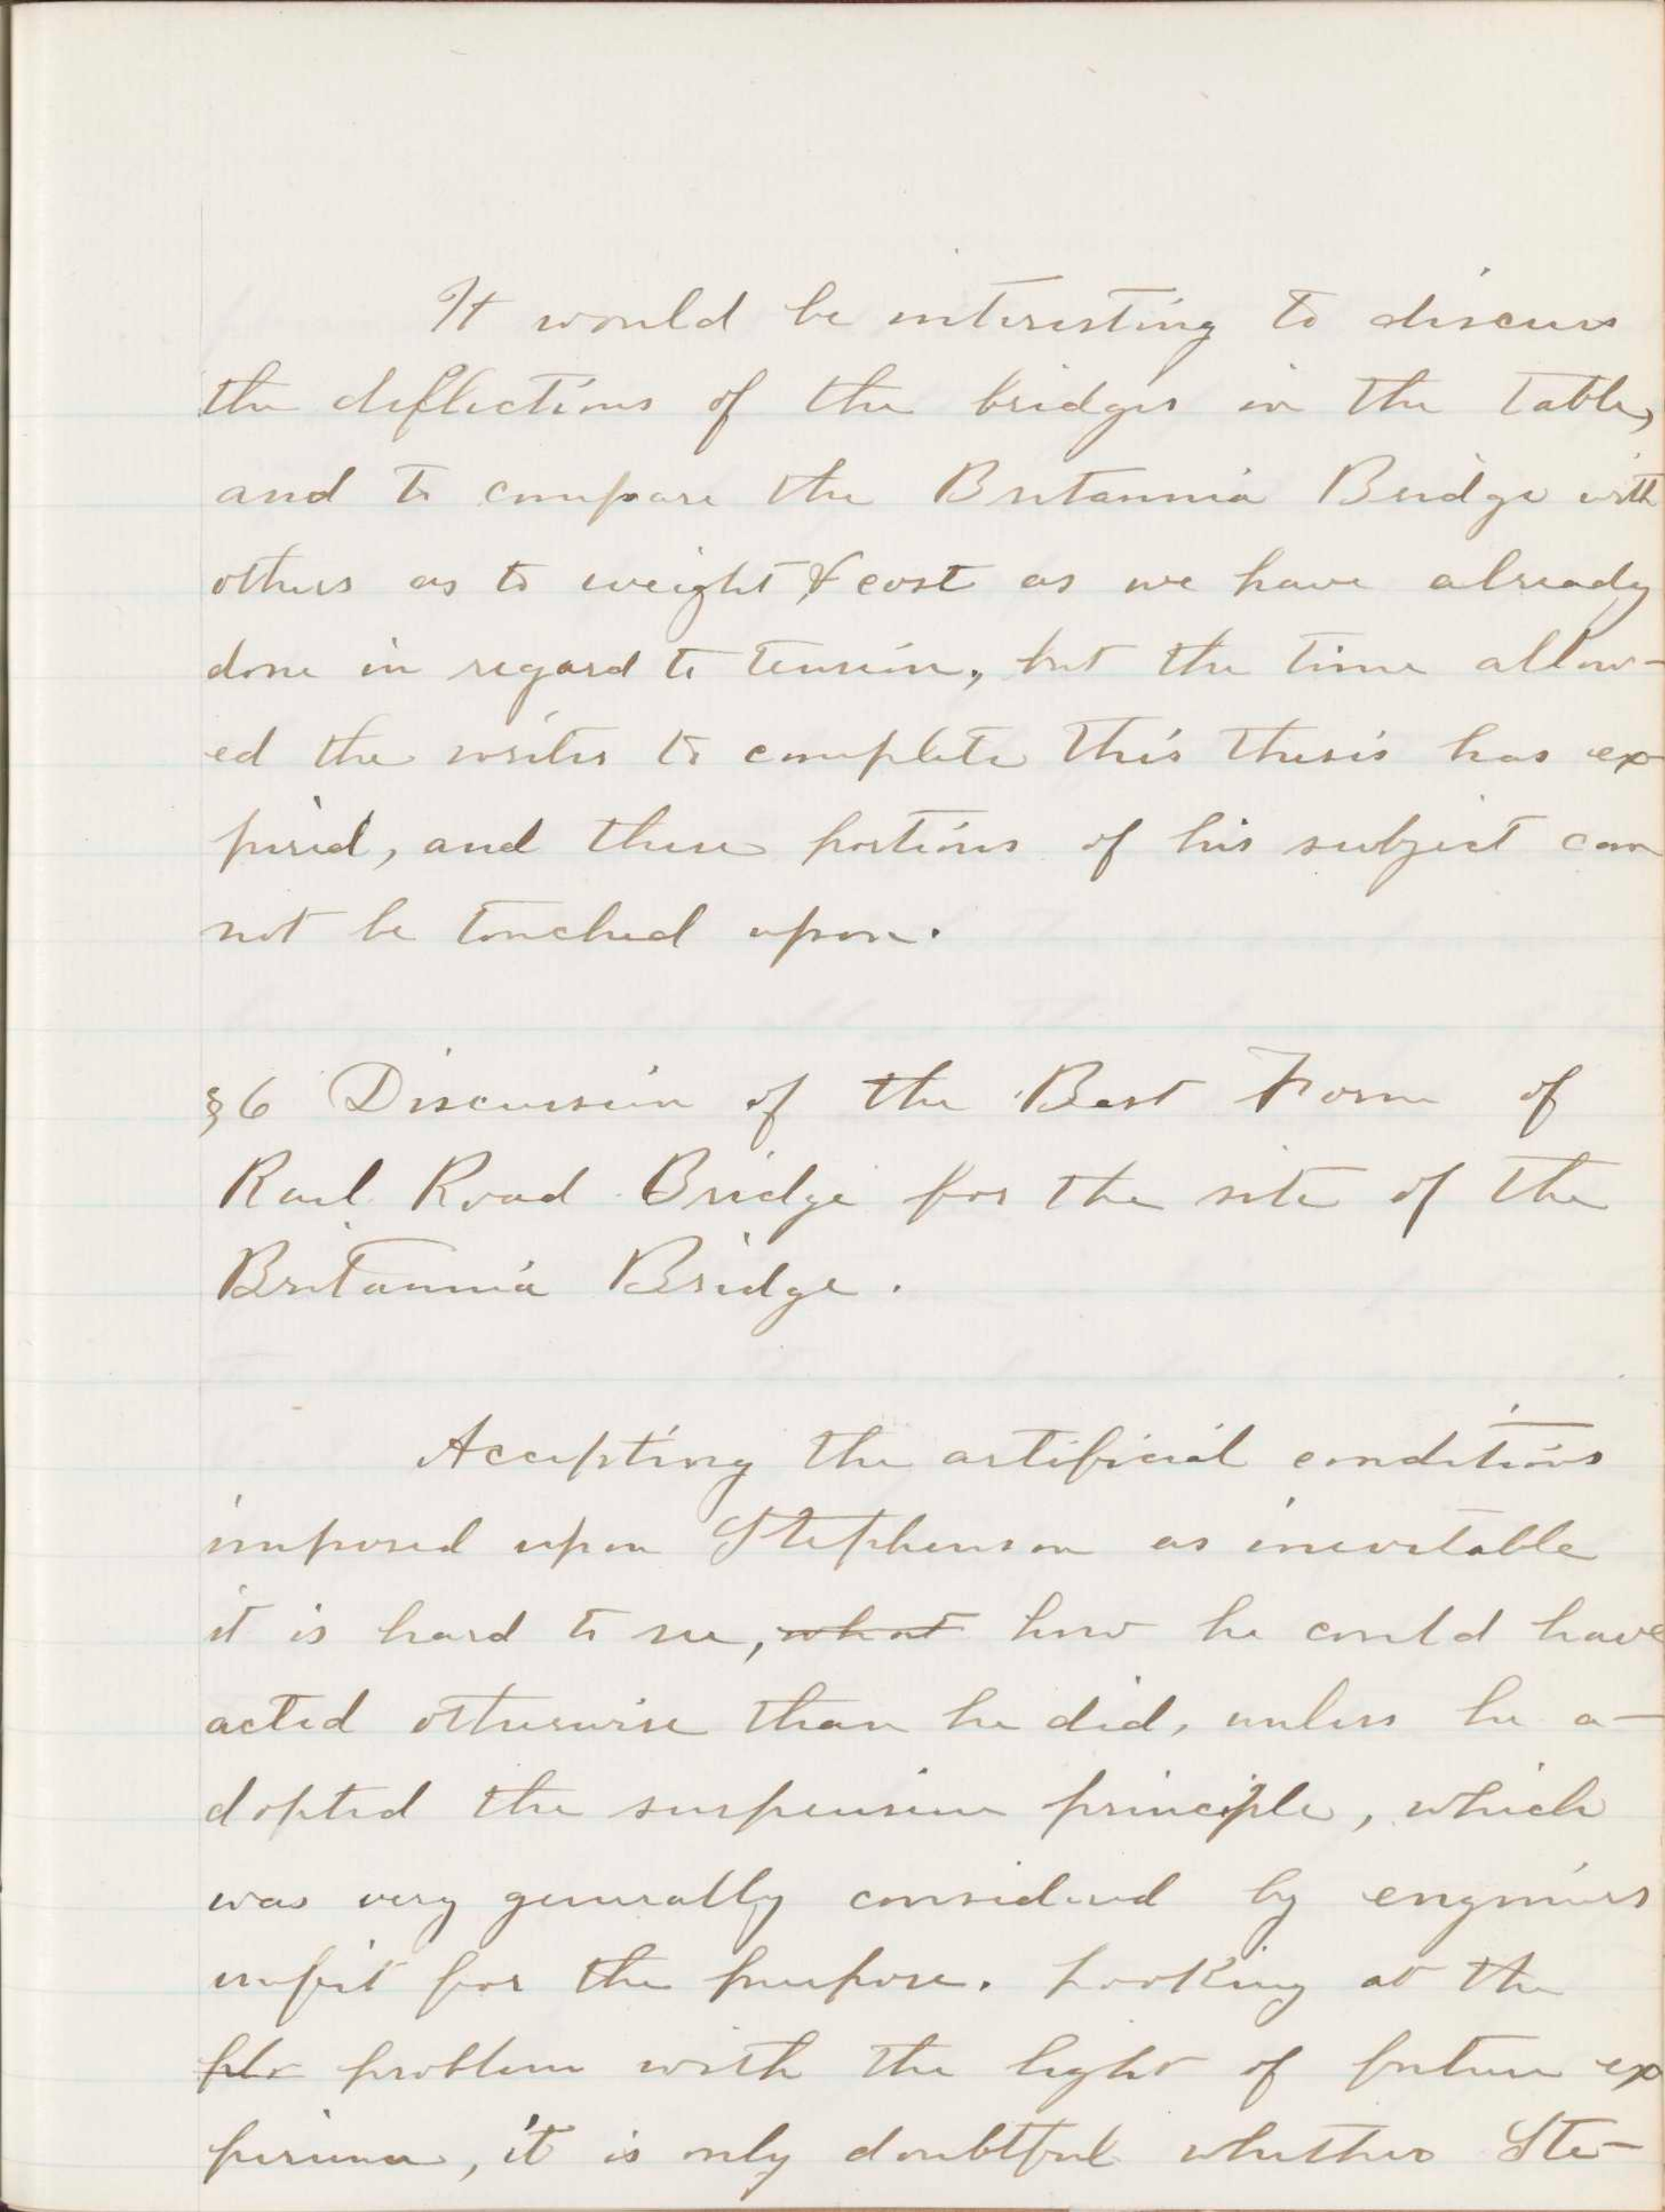 It would be interesting to discuss
the deflections of the bridges in the table,
and to compare the Britannia Bridge with
others as to weight & cost as we have already
done in regard to tension, but the time allow-
ed the writer to complete this thesis has ex
pired, and these portions of his subject can
not be touched upon.
§6 Discussion of the Best Form of
Rail Road Bridge for the site of the
Britannia Bridge.
Accepting the artificial conditions
imposed upon Stephenson as inevitable
it is hard to see, what how he could have
acted otherwise than he did, unless he a-
dopted the suspension principle, which
was very generally considered by engineers
unfit for the purpose. Looking at the
plo problem with the light of future ex
perience, it is only doubtful whether Ste-